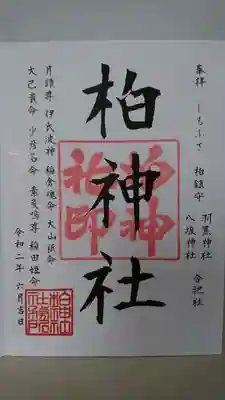 奉拝 しもふさ 柏鎮守
羽黒神社
八坂神社
合祀社
柏神社
柏神
社印
月讀尊 伊氐波神 稲倉魂命 大山祇命
大己貴命 少彦名命 素戔嗚尊 稲田姫命
令和二年六月吉日